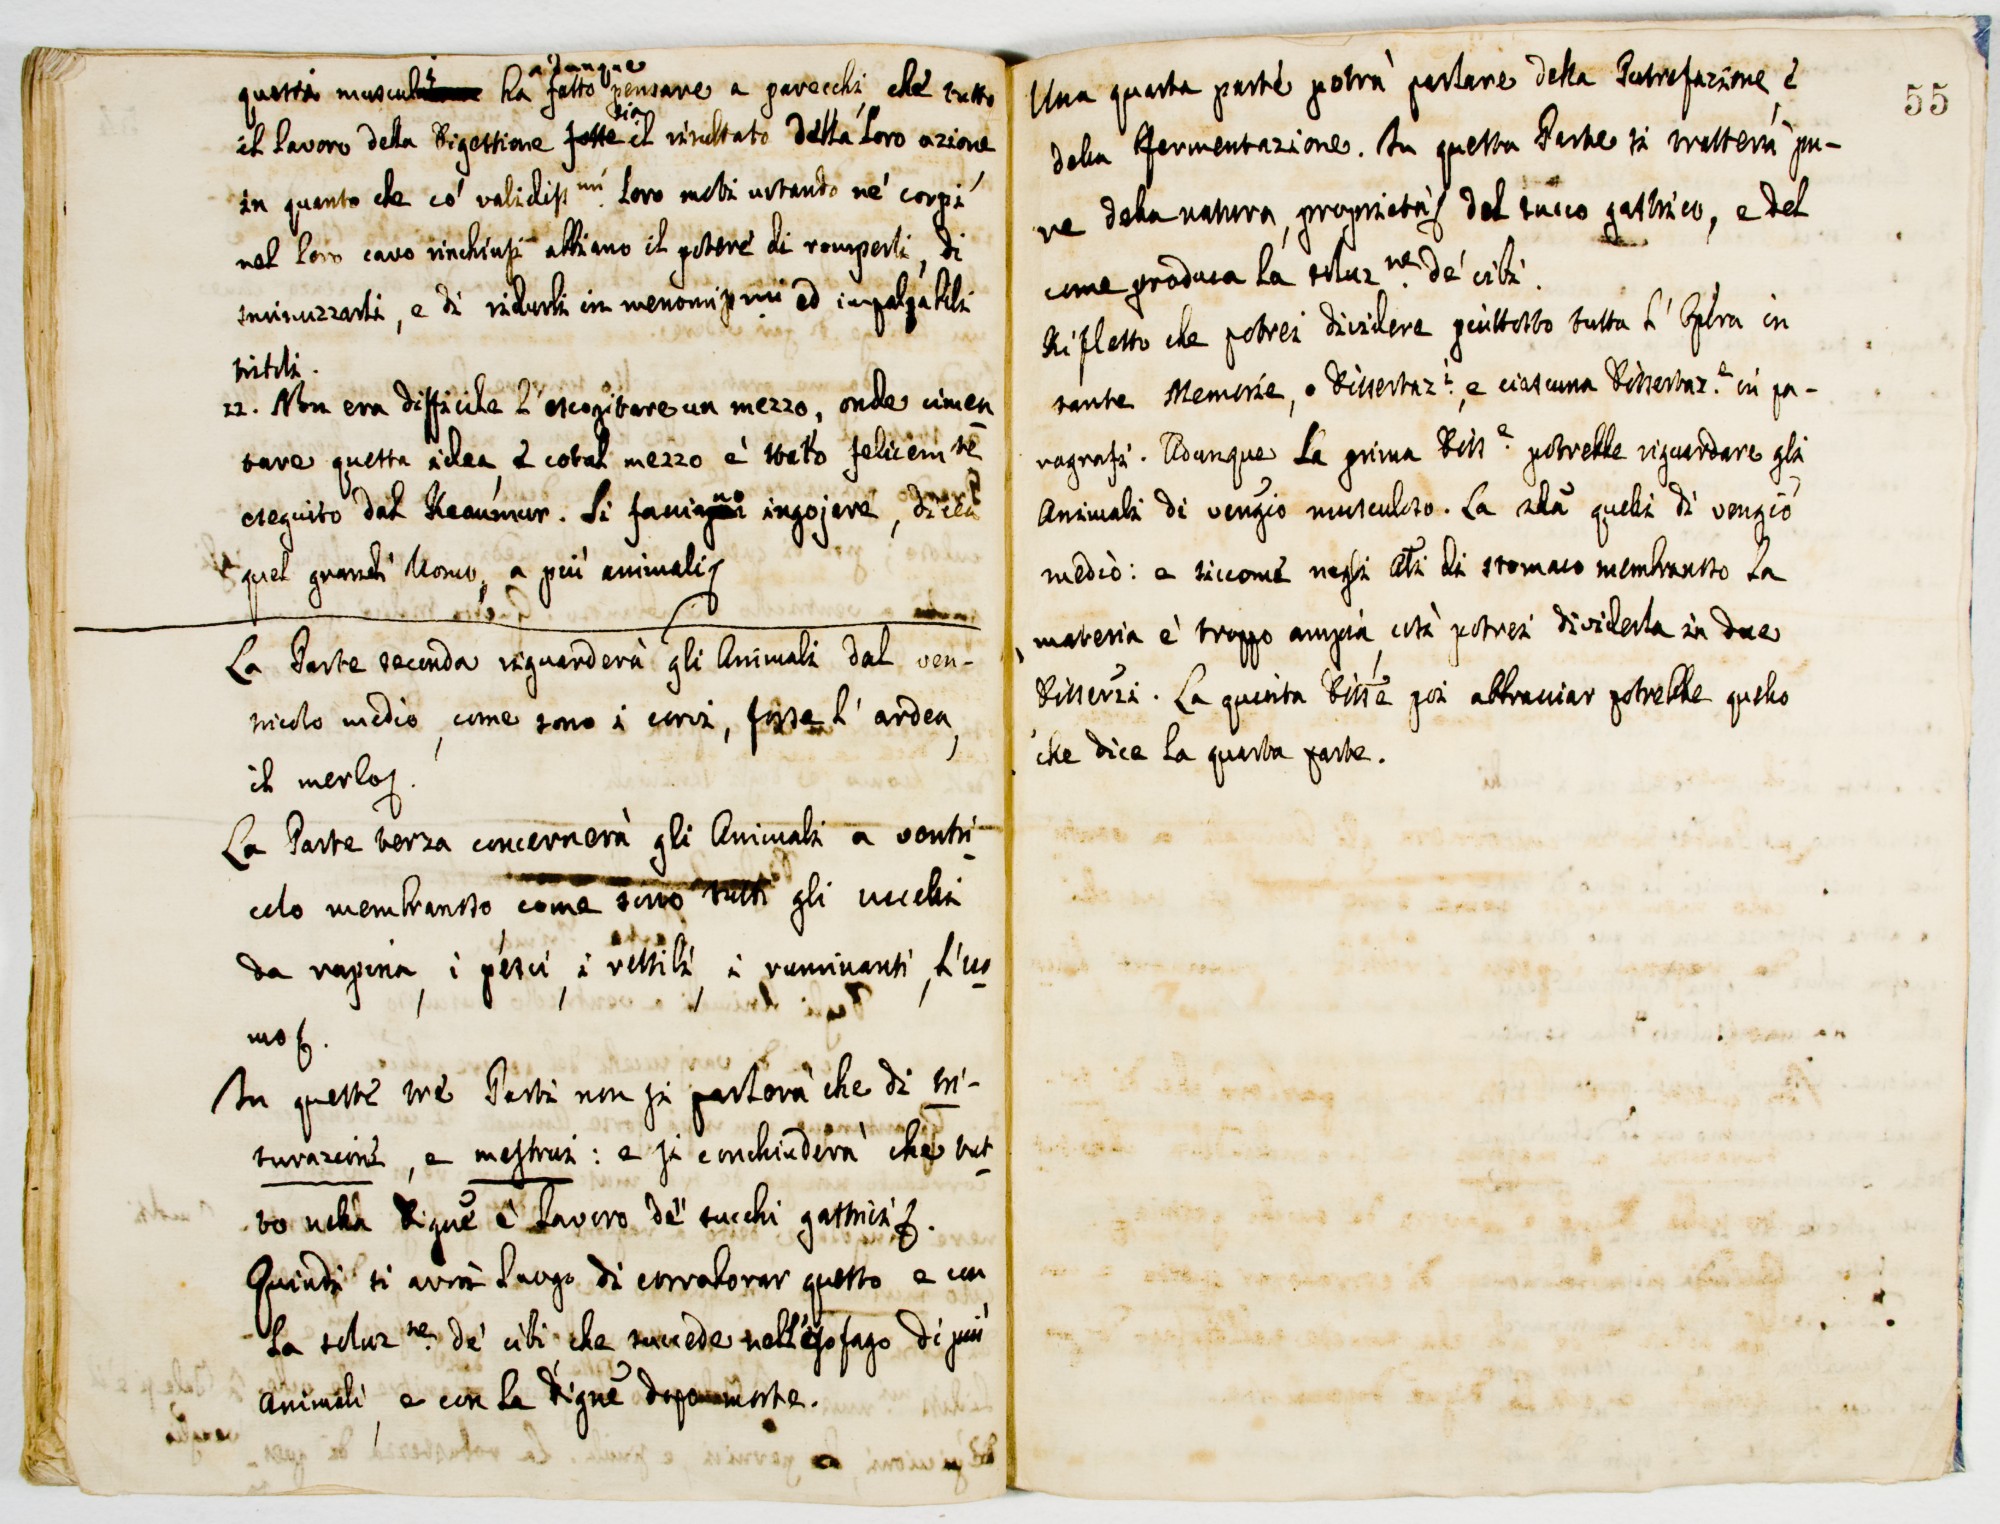 adunque
questi muscoli ha fatto pensare a parecchi che tutto
sia
il lavoro della Digestione fosse il risultato della loro azione
in quanto che co' validiss.mi loro moti urtando ne' corpi
nel loro cavo rinchiusi abbiano il potere di romperli, di
sminuzzarli, e di ridurli in menomissmi ed impalpabili
tritoli.
22. Non era difficile l'escogitare un mezzo, onde cimen
tare questa idea, e cotal mezzo è stato felicemte
eseguito dal Reaumur. Si facciano ingojare, diceva
quel grand' Uomo, a più animali
La Parte seconda riguarderà gli Animali dal ven-
tricolo medio, come sono i corvi, forse l'ardea,
il merlo.
La Parte terza concernerà gli Animali a ventri-
colo membranoso, come sono tutti gli uccelli
da rapina, i pesci, i rettili, i ruminanti, l'uo
mo.
In queste tre Parti non si parlerà che di tri-
turazione, e mestrui: e si conchiuderà che tut-
to nella Digne è lavoro de' succhi gastrici.
Quindi si avrà luogo di corroborar questo e con
la soluz.ne de' cibi che succede nell'esofago di più
Animali, e con la digne dopo morte.
55
Una quarta parte potrà parlare della Putrefazione, e
della fermentazione. In questa Parte si tratterà pu-
re della natura, proprietà del succo gastrico, e del
come produca la soluz.ne de' cibi.
Rifletto che potrei dividere piuttosto tutta l'Opera in
tante Memorie, o Dissertaz.i, e ciascuna Dissertaz.e in pa-
ragrafi. Adunque la prima Diss.e potrebbe riguardare gli
Animali di vengio musculoso. La 2da quelli di vengio
medio: e siccome negli Ali di stomaco membranoso la
materia è troppo ampia, così potrei dividerla in due
Disserzi. La quinta Disse poi abbracciar potrebbe quello
che dice la quarta parte.